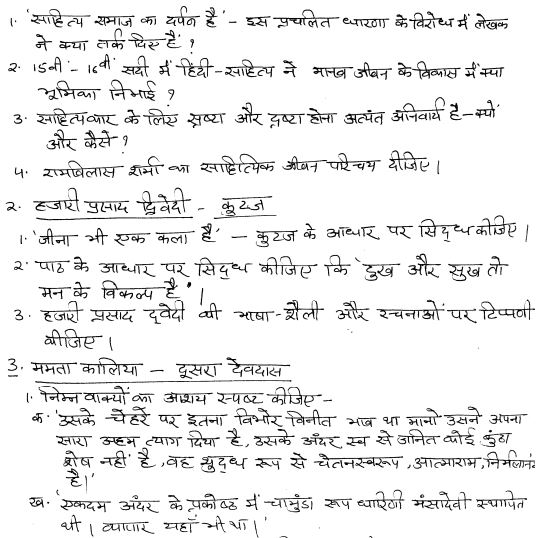 1. 'साहित्य समाज का दर्पन है' - इस प्रचलित धारणा के विरोध में लेखक
ने क्या तर्क दिए हैं ?
2. 15वीं - 16वीं सदी में हिंदी-साहित्य ने मानव जीवन के विकास में क्या
भूमिका निभाई ?
3. साहित्यकार के लिए स्रष्टा और द्रष्टा होना अत्यंत अनिवार्य है - क्यों
और कैसे ?
4. रामविलास शर्मा का साहित्यिक जीवन परिचय दीजिए।
2. हजारी प्रसाद द्विवेदी - कुटज
1. 'जीना भी एक कला है' - कुटज के आधार पर सिद्ध कीजिए।
2. पाठ के आधार पर सिद्ध कीजिए कि 'दुख और सुख तो
मन के विकल्प हैं'।
3. हजारी प्रसाद द्वेदी की भाषा-शैली और रचनाओं पर टिप्पणी
कीजिए।
3. ममता कालिया - दूसरा देवदास
1. निम्न वाक्यों का आशय स्पष्ट कीजिए -
क. 'उसके चेहरे पर इतना विभोर विनीत भाव था मानो उसने अपना
सारा अहम त्याग दिया है, उसके अंदर स्व से जनित कोई कुंठा
शेष नहीं है, वह शुद्ध रूप से चेतनस्वरूप, आत्माराम, निर्मलानंद
है।'
ख. 'एकदम अंदर के प्रकोष्ठ में चामुंडा रूप धारिणी मंसादेवी स्थापित
थी। व्यापार यहाँ भी था।'